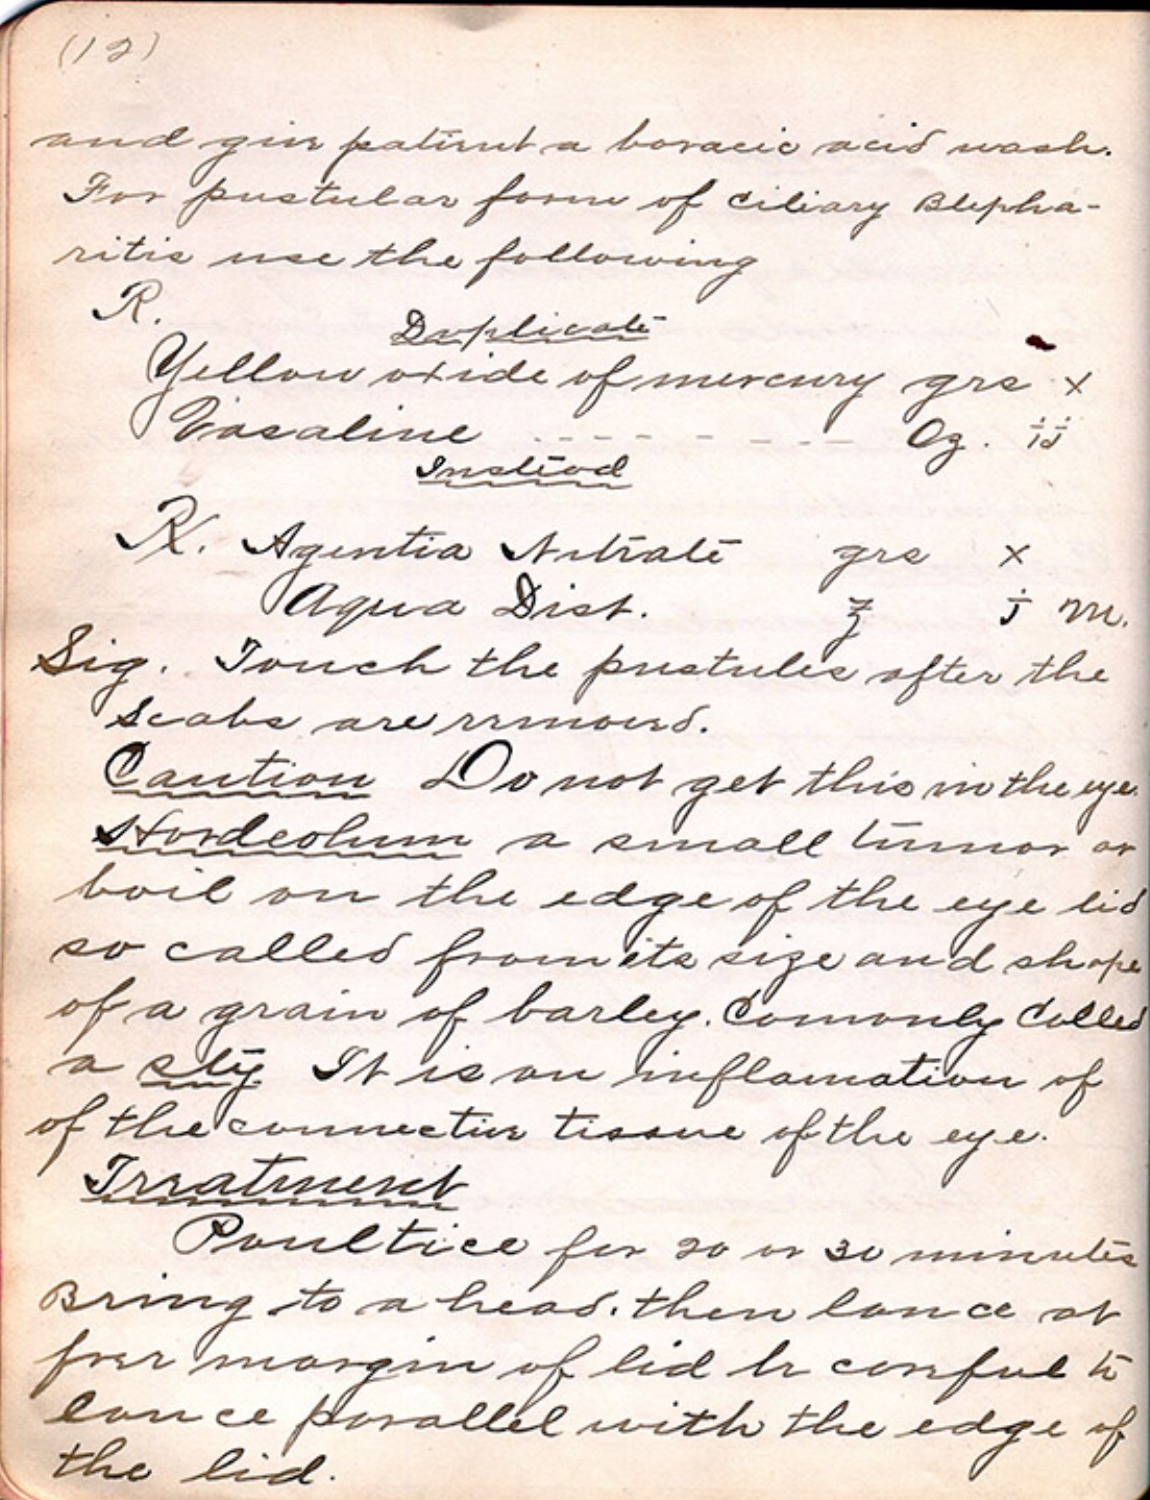 (12)
and give patient a boracic acid wash.
For pustular form of ciliary Blepha-
ritis use the following
R.
Duplicate
Yellow oxide of mercury grs x
Vasaline - - - - - - - - Oz. ij
Instead
Rx. Agentia Nitrate grs x
Aqua Dist. ʒ j m.
Sig. Touch the pustules after the
scabs are removed.
Caution Do not get this in the eye.
Hordeolum a small tumor or
boil on the edge of the eye lid
so called from its size and shape
of a grain of barley. Comonly Called
a sty. It is an inflamation of
of the connective tissue of the eye.
Treatment
Poultice for 20 or 30 minutes
Bring to a head. then lance at
free margin of lid be careful to
lance parallel with the edge of
the lid.